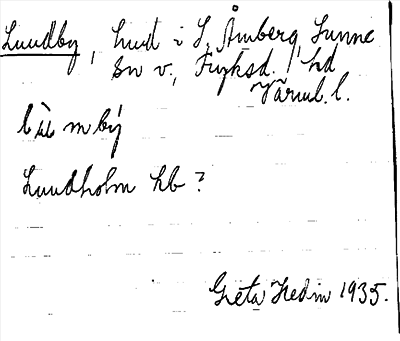 Lundby, hmd i S. Åmberg, Sunne
sn v., Fryksd. hd
Värml. l.
Lundholm hb ?
Greta Hedin 1935.